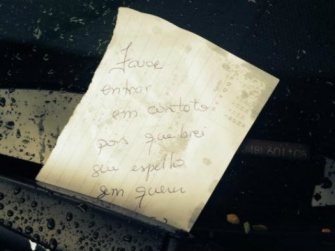 Favor
entrar
em contato
pois quebrei
seu espelho
sem querer